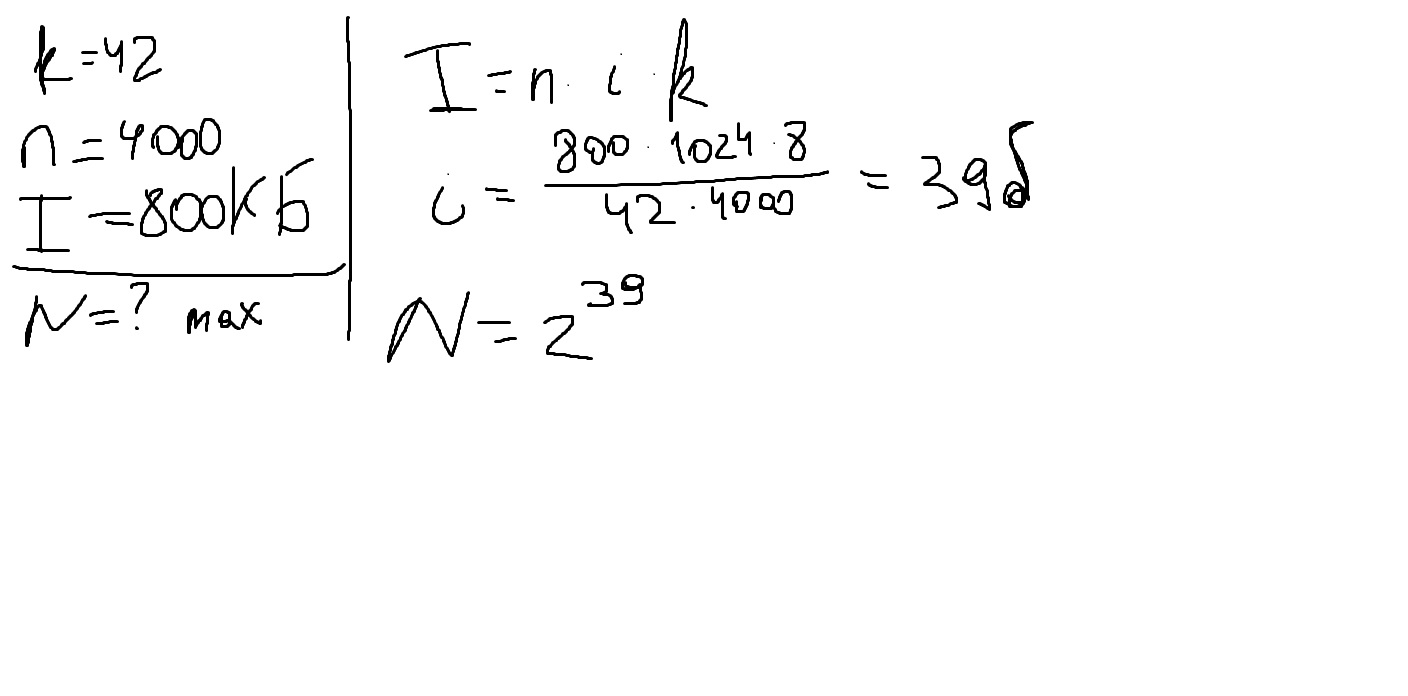 k=42
n=4000
I=800Кб
N=? max
I=n·i·k
i=800·1024·8/42·4000=39б
N=2^39